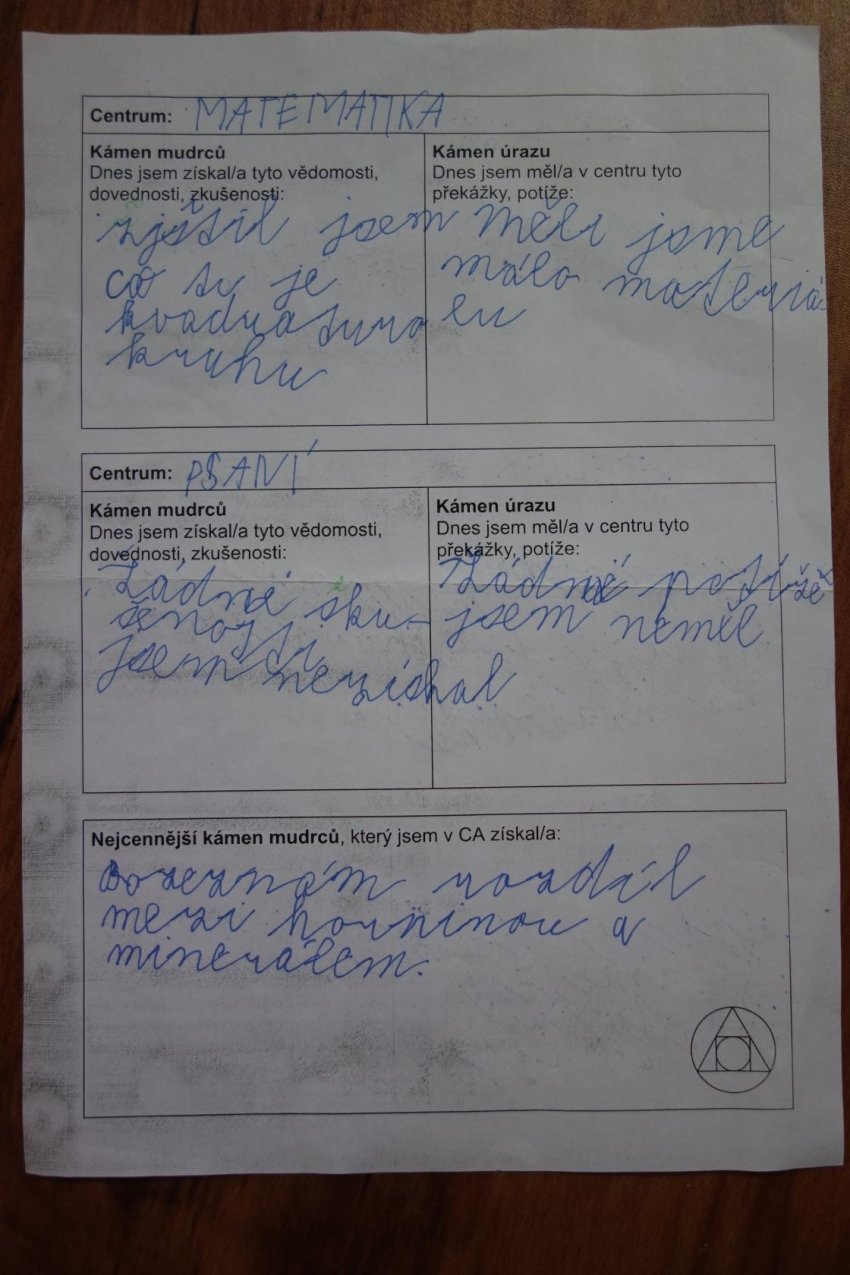 Centrum: MATEMATIKA
Kámen mudrců
Dnes jsem získal/a tyto vědomosti,
dovednosti, zkušenosti:
zjštil jsem
co to je
kvadratura
kruhu
Kámen úrazu
Dnes jsem měl/a v centru tyto
překážky, potíže:
Měli jsme
málo materiá
lu
Centrum: PSANÍ
Kámen mudrců
Dnes jsem získal/a tyto vědomosti,
dovednosti, zkušenosti:
Žádné sku-
šenosti
jsem nezískal
Kámen úrazu
Dnes jsem měl/a v centru tyto
překážky, potíže:
Žádné potíže
jsem neměl
Nejcennější kámen mudrců, který jsem v CA získal/a:
rozdíl
mezi horninou a
minerálem.